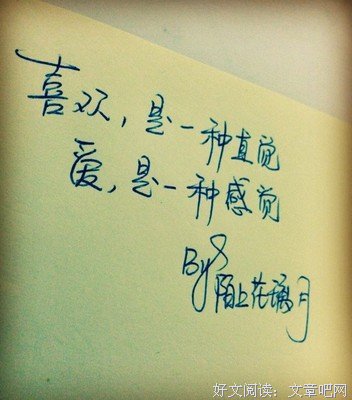 喜欢，是一种直觉
爱，是一种感觉
By
陌上花璃月
好文阅读：文章吧网